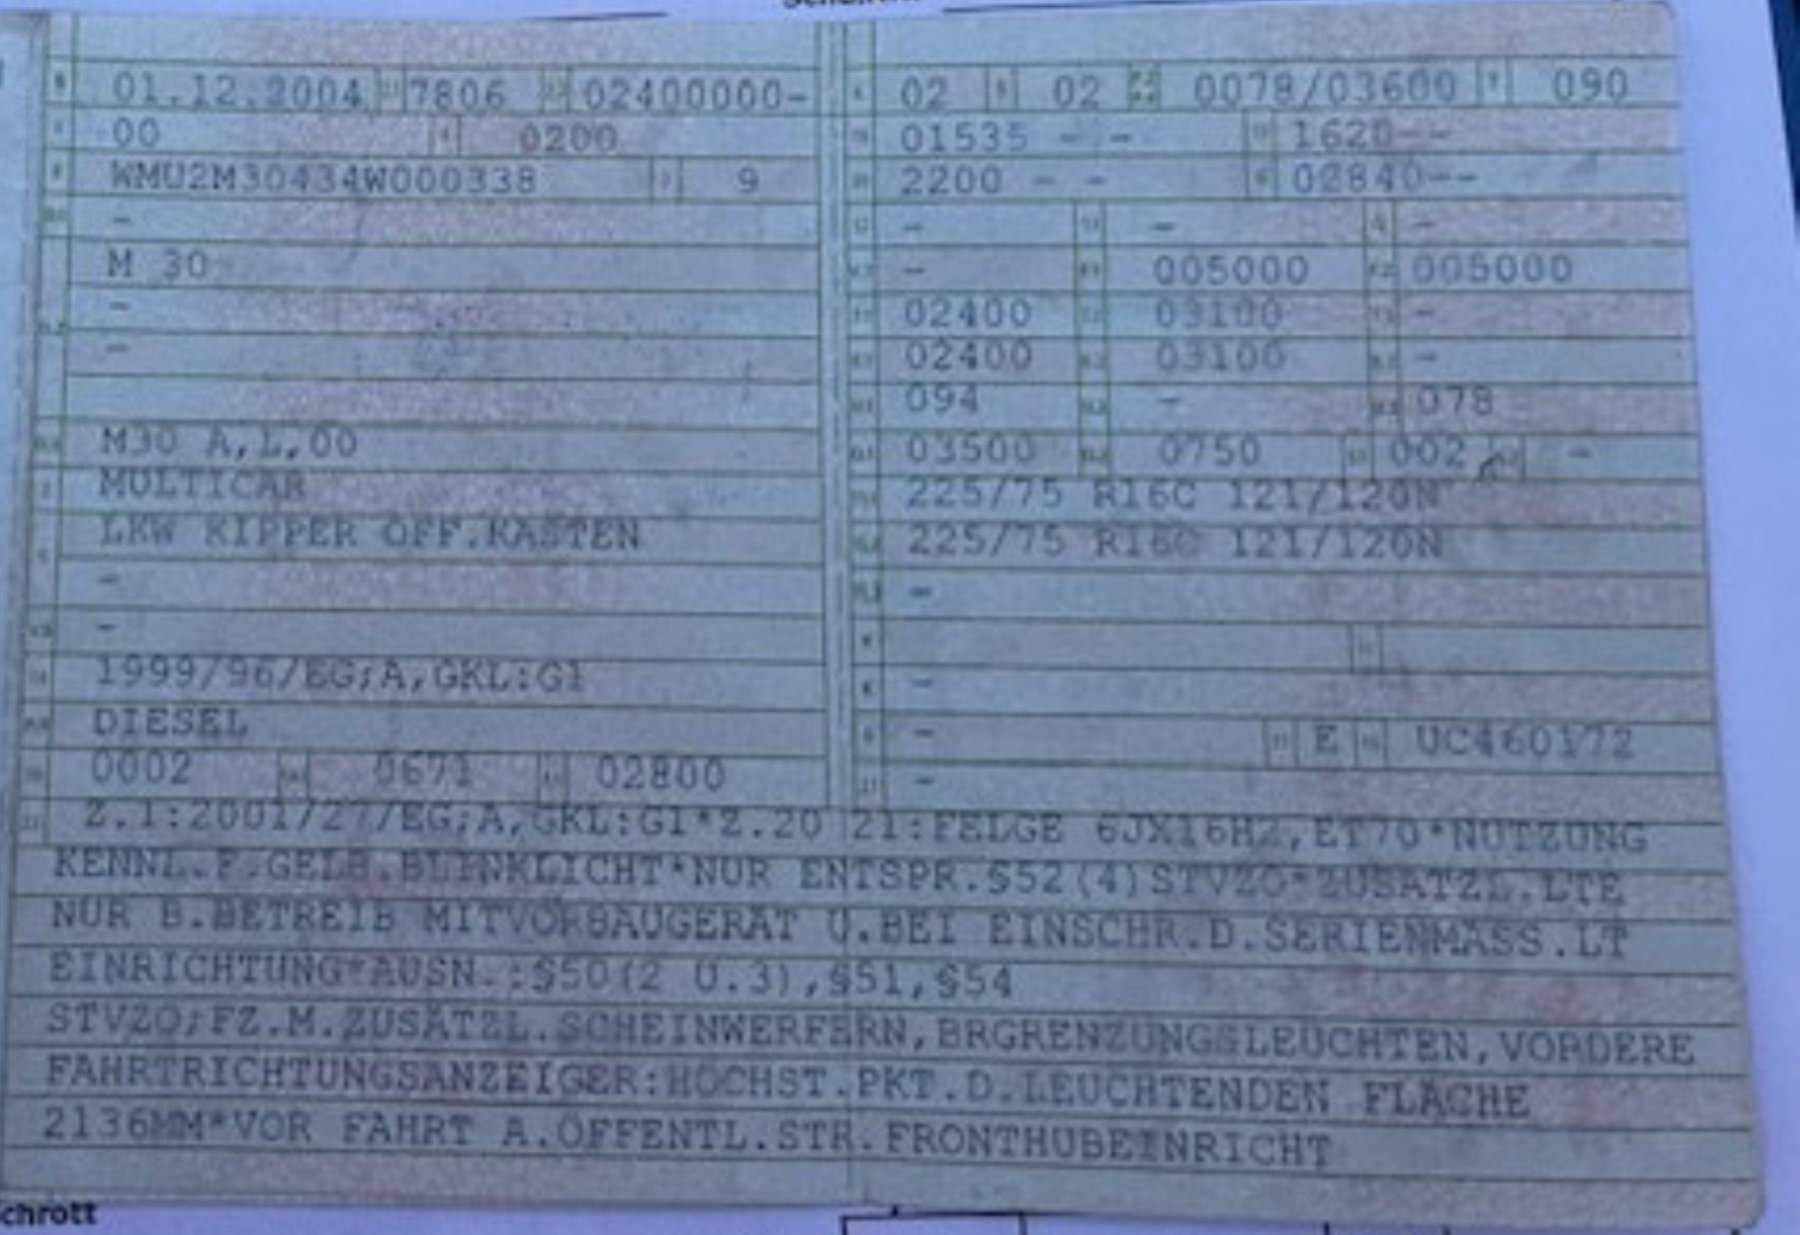 01.12.2004 7806 02400000-
00 0200
WMU2M30434W000338 9
-
M 30
-
-
M30 A,L,00
MULTICAR
LKW KIPPER OFF.KASTEN
-
-
1999/96/EG;A,GKL:G1
DIESEL
0002 0671 02800
02 02 0078/03600 090
01535 - - 1620--
2200 - - 02840--
- - -
- 005000 005000
02400 03100 -
02400 03100 -
094 - 078
03500 0750 002 -
225/75 R16C 121/120N
225/75 R16C 121/120N
-
-
- E UC460172
-
Z.1:2001/27/EG;A,GKL:G1*Z.20 21:FELGE 6JX16H2,ET70*NUTZUNG
KENNL.F.GELB.BLINKLICHT*NUR ENTSPR.§52(4)STVZO*ZUSATZL.LTE
NUR B.BETREIB MITVORBAUGERAT U.BEI EINSCHR.D.SERIENMASS.LT
EINRICHTUNG*AUSN.:§50(2 U.3),§51,§54
STVZO;FZ.M.ZUSÄTZL.SCHEINWERFERN,BRGRENZUNGSLEUCHTEN,VORDERE
FAHRTRICHTUNGSANZEIGER:HÖCHST.PKT.D.LEUCHTENDEN FLÄCHE
2136MM*VOR FAHRT A.ÖFFENTL.STR.FRONTHUBEINRICHT
chrott